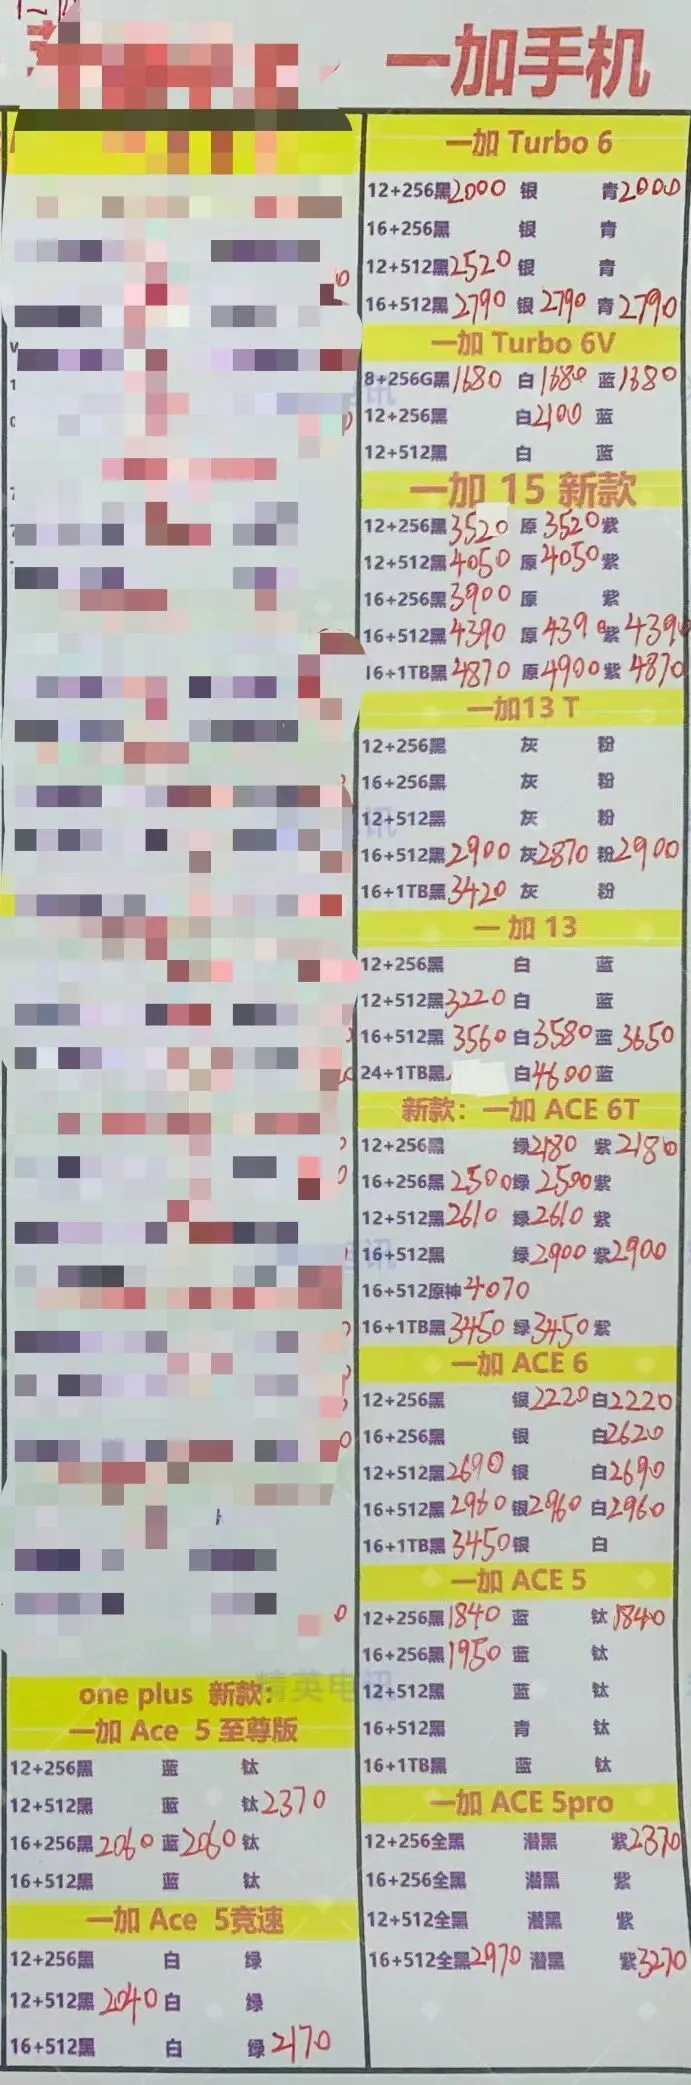 一加手机
一加 Turbo 6
12+256黑2000 银 青2000
16+256黑 银 青
12+512黑2520 银 青
16+512黑2790 银2790 青2790
一加 Turbo 6V
8+256G黑1680 白1680 蓝1380
12+256黑 白2100 蓝
12+512黑 白 蓝
一加 15 新款
12+256黑3520 原3520紫
12+512黑4050 原4050紫
16+256黑3900 原 紫
16+512黑4390 原4390紫4390
16+1TB黑4870 原4900紫4870
一加13 T
12+256黑 灰 粉
16+256黑 灰 粉
12+512黑 灰 粉
16+512黑2900 灰2870 粉2900
16+1TB黑3420 灰 粉
一加 13
12+256黑 白 蓝
12+512黑3220 白 蓝
16+512黑 3560 白3580 蓝3650
24+1TB黑 白4600蓝
新款：一加 ACE 6T
12+256黑 绿2180 紫2180
16+256黑2500绿2500紫
12+512黑2610 绿2610 紫
16+512黑 绿2900 紫2900
16+512原神4070
16+1TB黑3450绿3450紫
一加 ACE 6
12+256黑 银2220白2220
16+256黑 银 白2620
12+512黑2690 银 白2690
16+512黑2960银2960 白2960
16+1TB黑3450银 白
一加 ACE 5
12+256黑1840 蓝 钛1840
16+256黑1950 蓝 钛
12+512黑 蓝 钛
16+512黑 青 钛
16+1TB黑 蓝 钛
一加 ACE 5pro
12+256全黑 潜黑 紫2370
16+256全黑 潜黑 紫
12+512全黑 潜黑 紫
16+512全黑2970 潜黑 紫3270
精英电讯
one plus 新款：
一加 Ace 5 至尊版
12+256黑 蓝 钛
12+512黑 蓝 钛2370
16+256黑2060 蓝2060 钛
16+512黑 蓝 钛
一加 Ace 5竞速
12+256黑 白 绿
12+512黑2040白 绿
16+512黑 白 绿2170